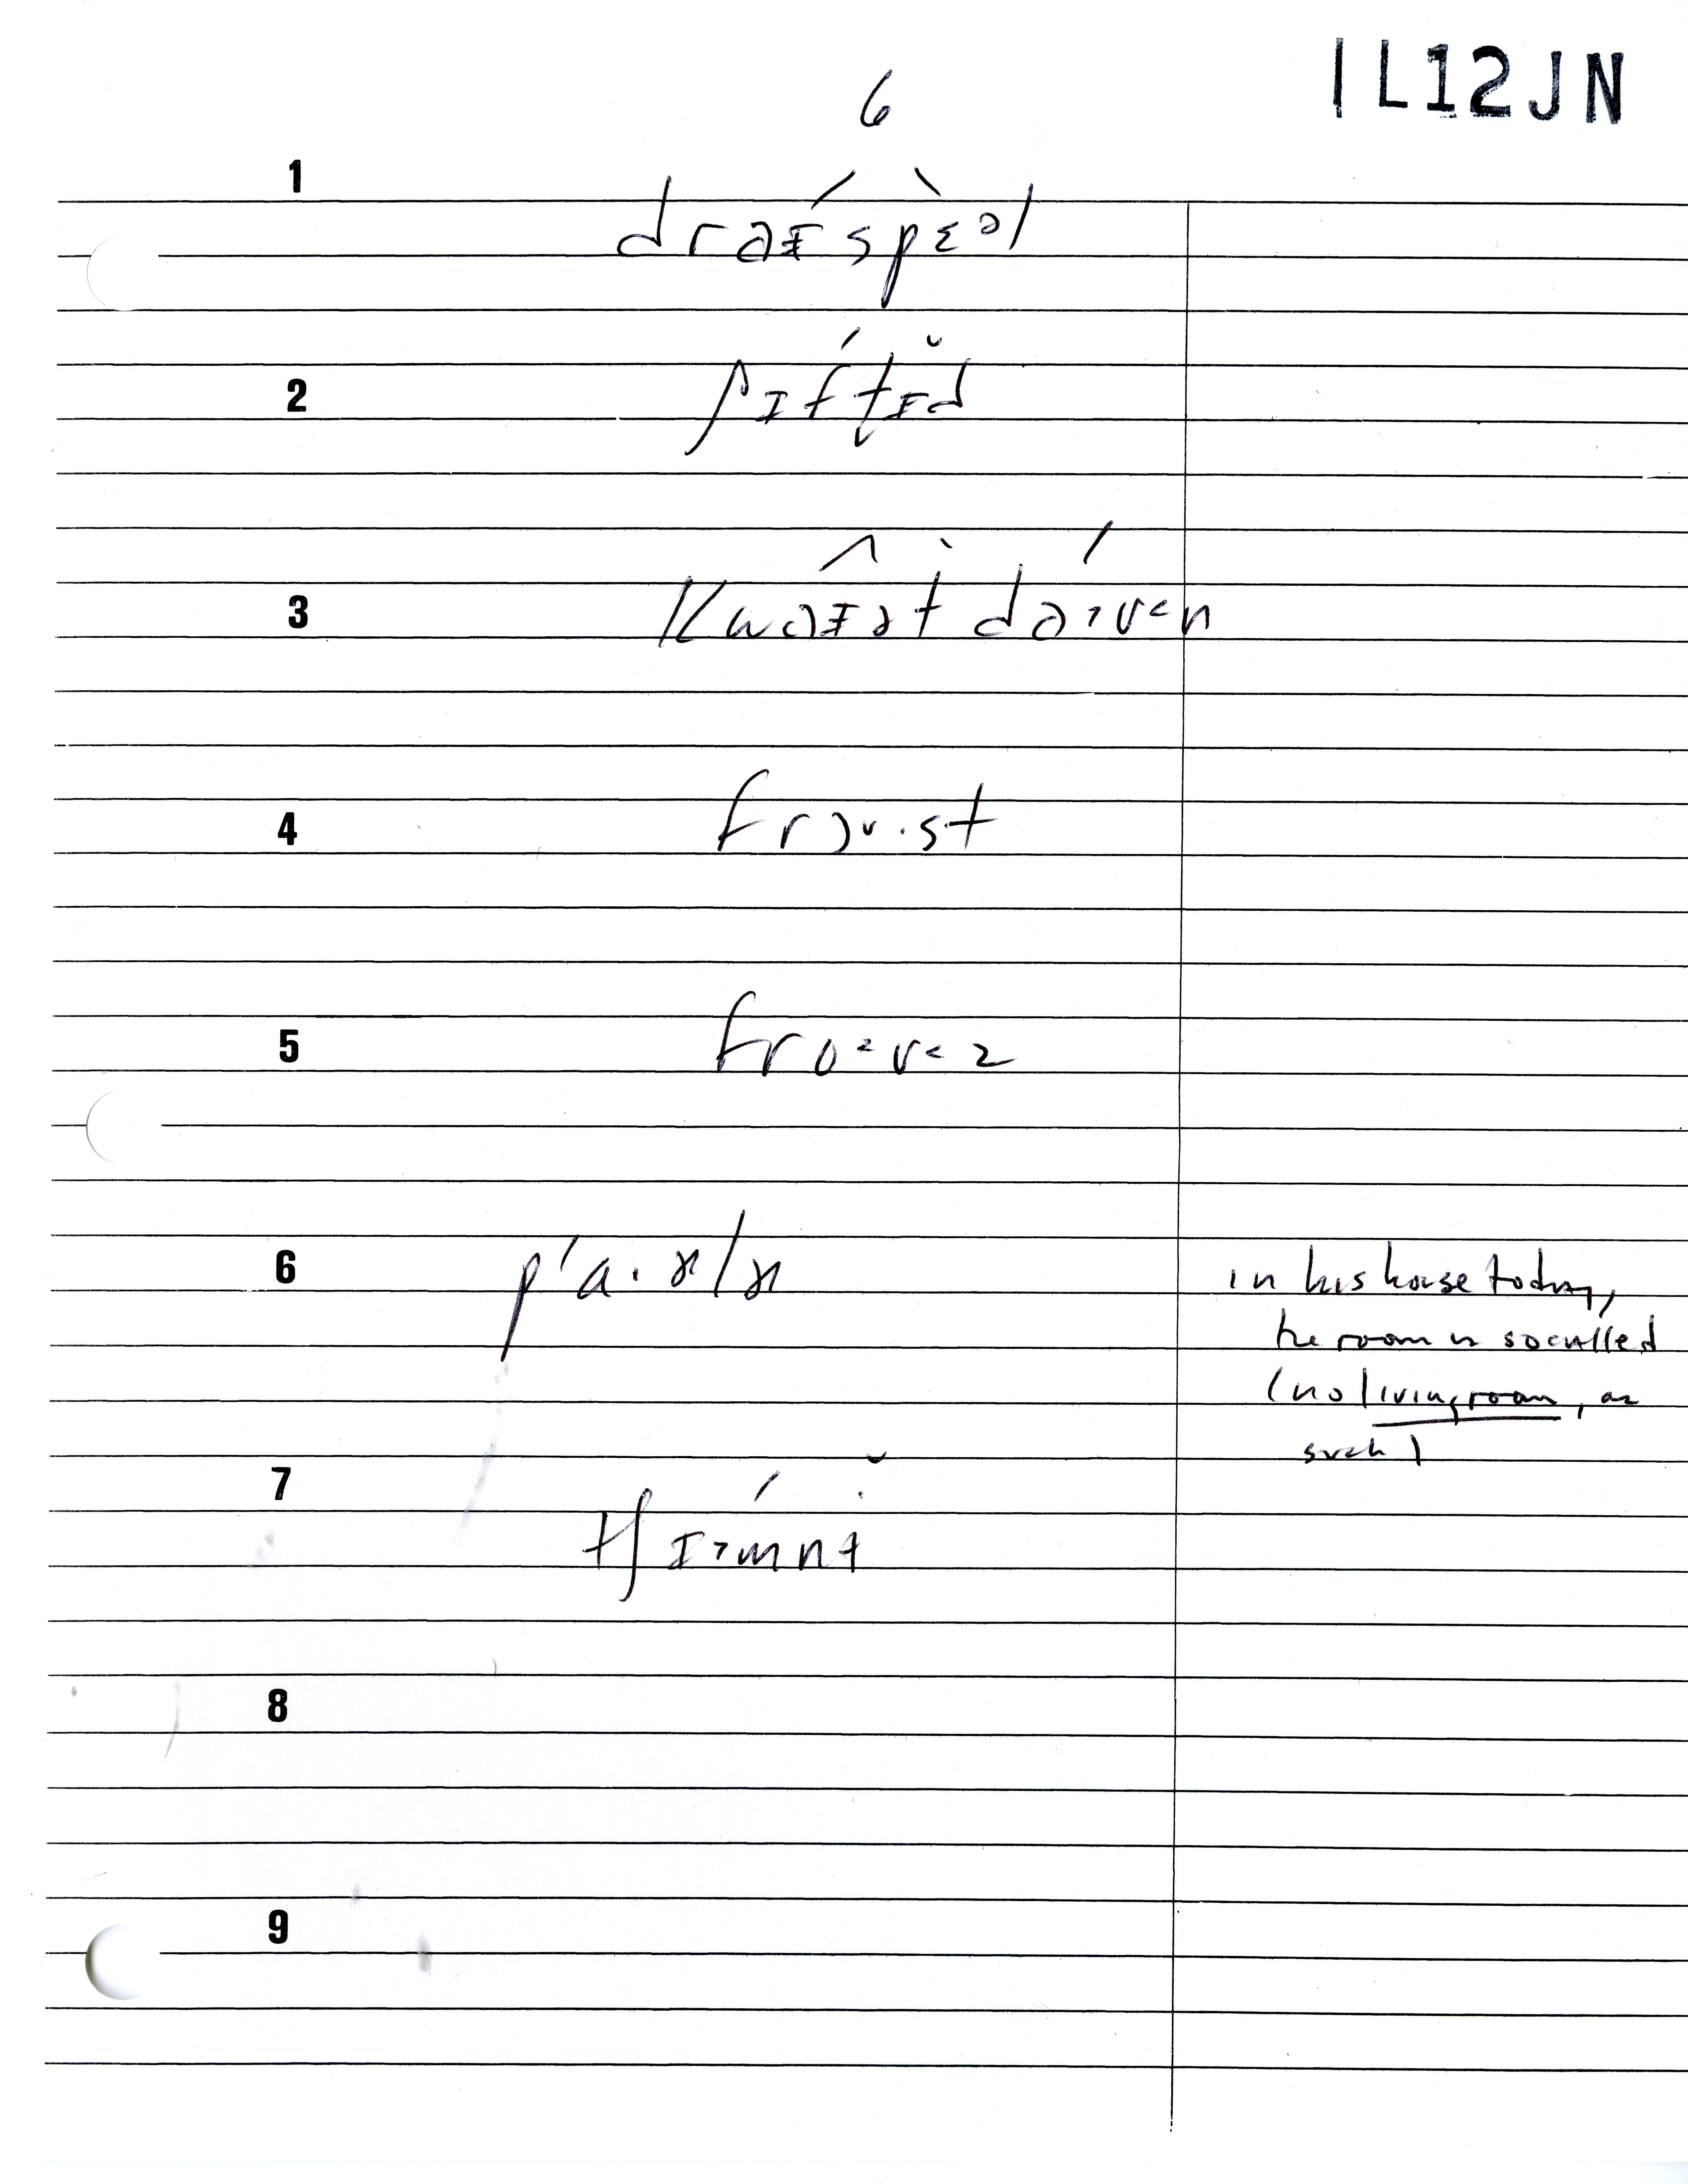 6
1L12JN
1 draɪspɛəl
2 pɪftɪd
3 kwaɪət daʊn
4 frɔv.st
5 fro<v<z
6 p'ɑ.ɚlɚ
in his house today,
the room is so called
(no livingroom, as
such)
7 tʃɪ>mnɨ
8
9